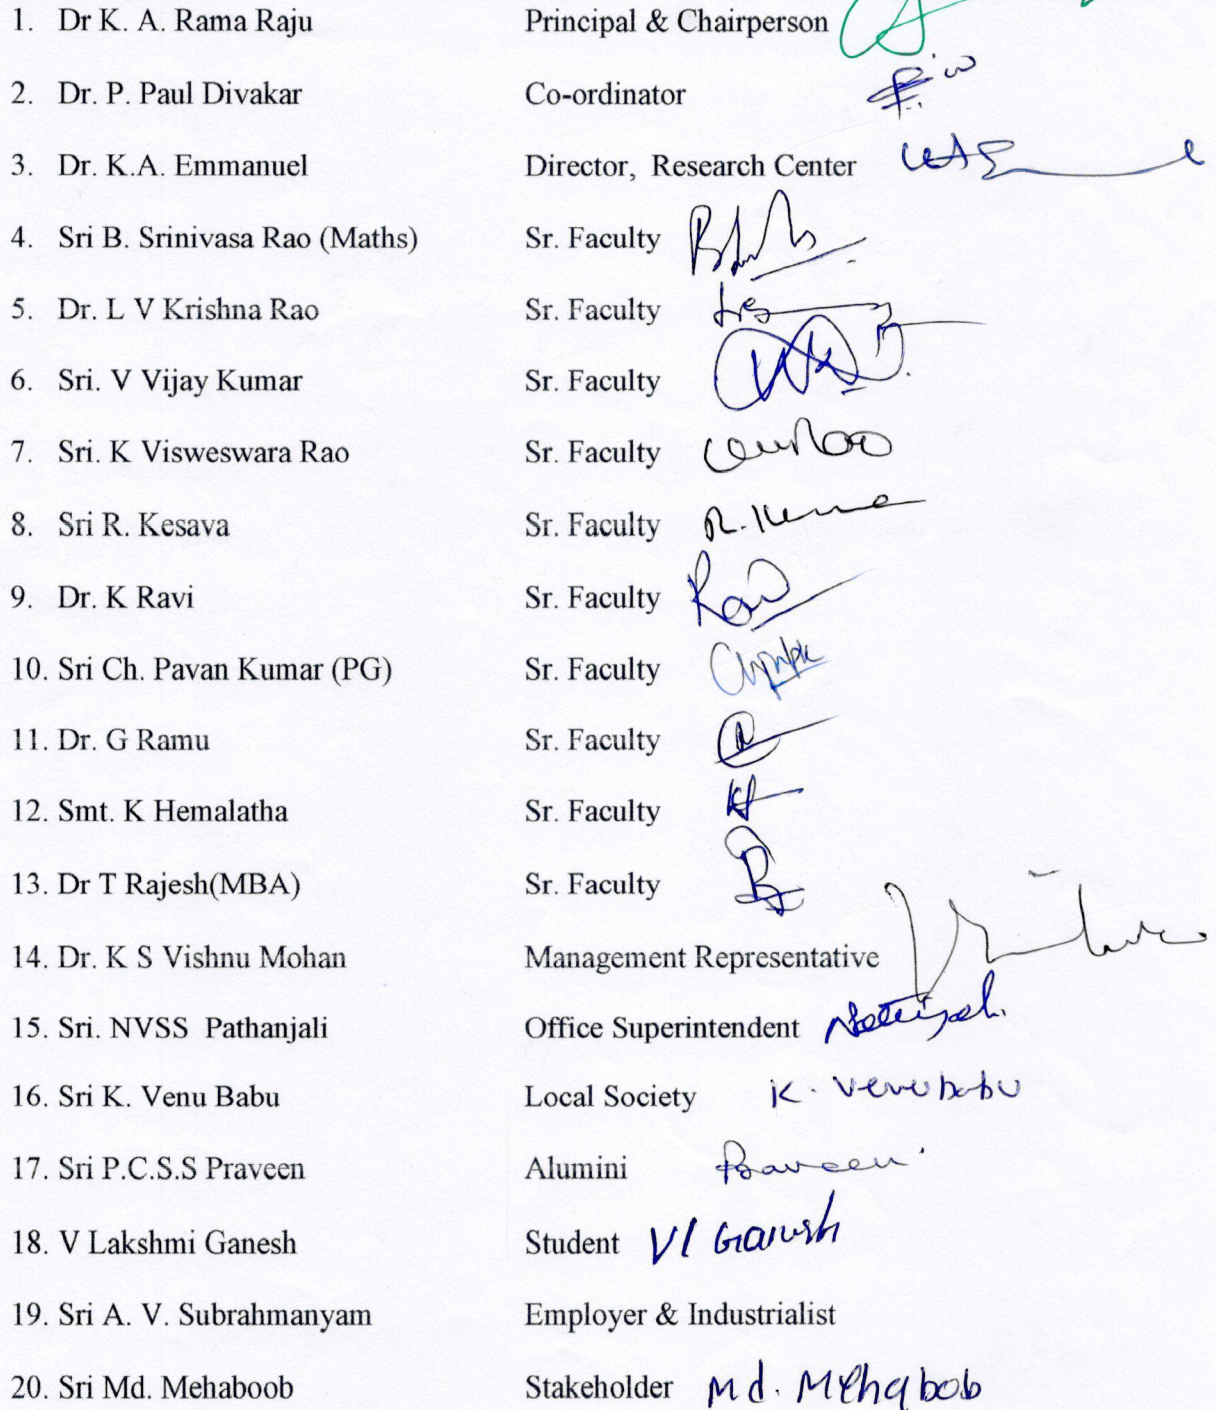 1. Dr K. A. Rama Raju Principal & Chairperson
2. Dr. P. Paul Divakar Co-ordinator
3. Dr. K.A. Emmanuel Director, Research Center
4. Sri B. Srinivasa Rao (Maths) Sr. Faculty
5. Dr. L V Krishna Rao Sr. Faculty
6. Sri. V Vijay Kumar Sr. Faculty
7. Sri. K Visweswara Rao Sr. Faculty
8. Sri R. Kesava Sr. Faculty
9. Dr. K Ravi Sr. Faculty
10. Sri Ch. Pavan Kumar (PG) Sr. Faculty
11. Dr. G Ramu Sr. Faculty
12. Smt. K Hemalatha Sr. Faculty
13. Dr T Rajesh(MBA) Sr. Faculty
14. Dr. K S Vishnu Mohan Management Representative
15. Sri. NVSS Pathanjali Office Superintendent
16. Sri K. Venu Babu Local Society K. Venu babu
17. Sri P.C.S.S Praveen Alumini Praveen
18. V Lakshmi Ganesh Student Vl Ganesh
19. Sri A. V. Subrahmanyam Employer & Industrialist
20. Sri Md. Mehaboob Stakeholder Md. Mehabob